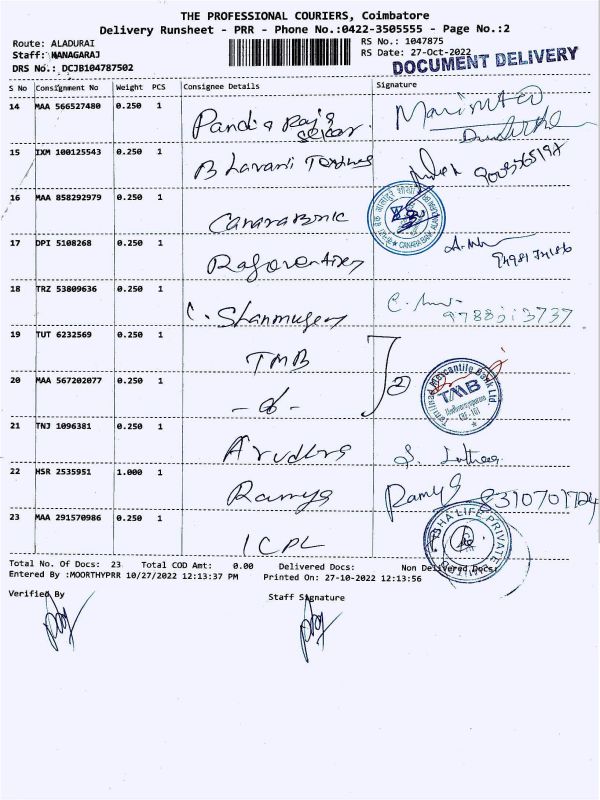 THE PROFESSIONAL COURIERS, Coimbatore
Delivery Runsheet - PRR - Phone No.:0422-3505555 - Page No.:2
Route: ALADURAI
Staff: NANAGARAJ
DRS No.: DCJB104787502
RS No.: 1047875
RS Date: 27-Oct-2022
DOCUMENT DELIVERY
S No Consignment No Weight PCS Consignee Details Signature
14 MAA 566527480 0.250 1 Pandia Raja Sekar
15 IXM 100125543 0.250 1 Bhavani
16 MAA 858292979 0.250 1 Canara Bank
CANARA BANK
17 DPI 5108268 0.250 1
18 TRZ 53809636 0.250 1 C. Shanmugam
19 TUT 6232569 0.250 1 TMB
20 MAA 567202077 0.250 1 -do- 2
Tamilnad Mercantile Bank Ltd
TMB
21 TNJ 1096381 0.250 1 Arudhra
22 HSR 2535951 1.000 1 Ramya Ramya 8310701724
23 MAA 291570986 0.250 1 ICPL
ISHA LIFE PRIVATE LIMITED
Total No. Of Docs: 23 Total COD Amt: 0.00 Delivered Docs: Non Delivered Docs:
Entered By :MOORTHYPRR 10/27/2022 12:13:37 PM Printed On: 27-10-2022 12:13:56
Verified By Staff Signature